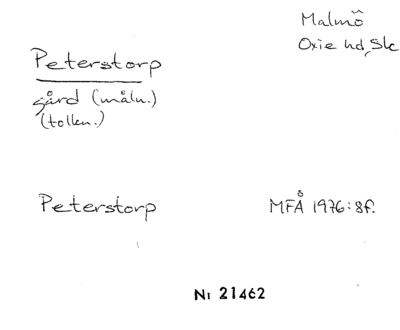 Malmö
Oxie hd, Sk
Peterstorp
gård (måln.)
(tolkn.)
Peterstorp MFÅ 1976:8f.
Nr 21462